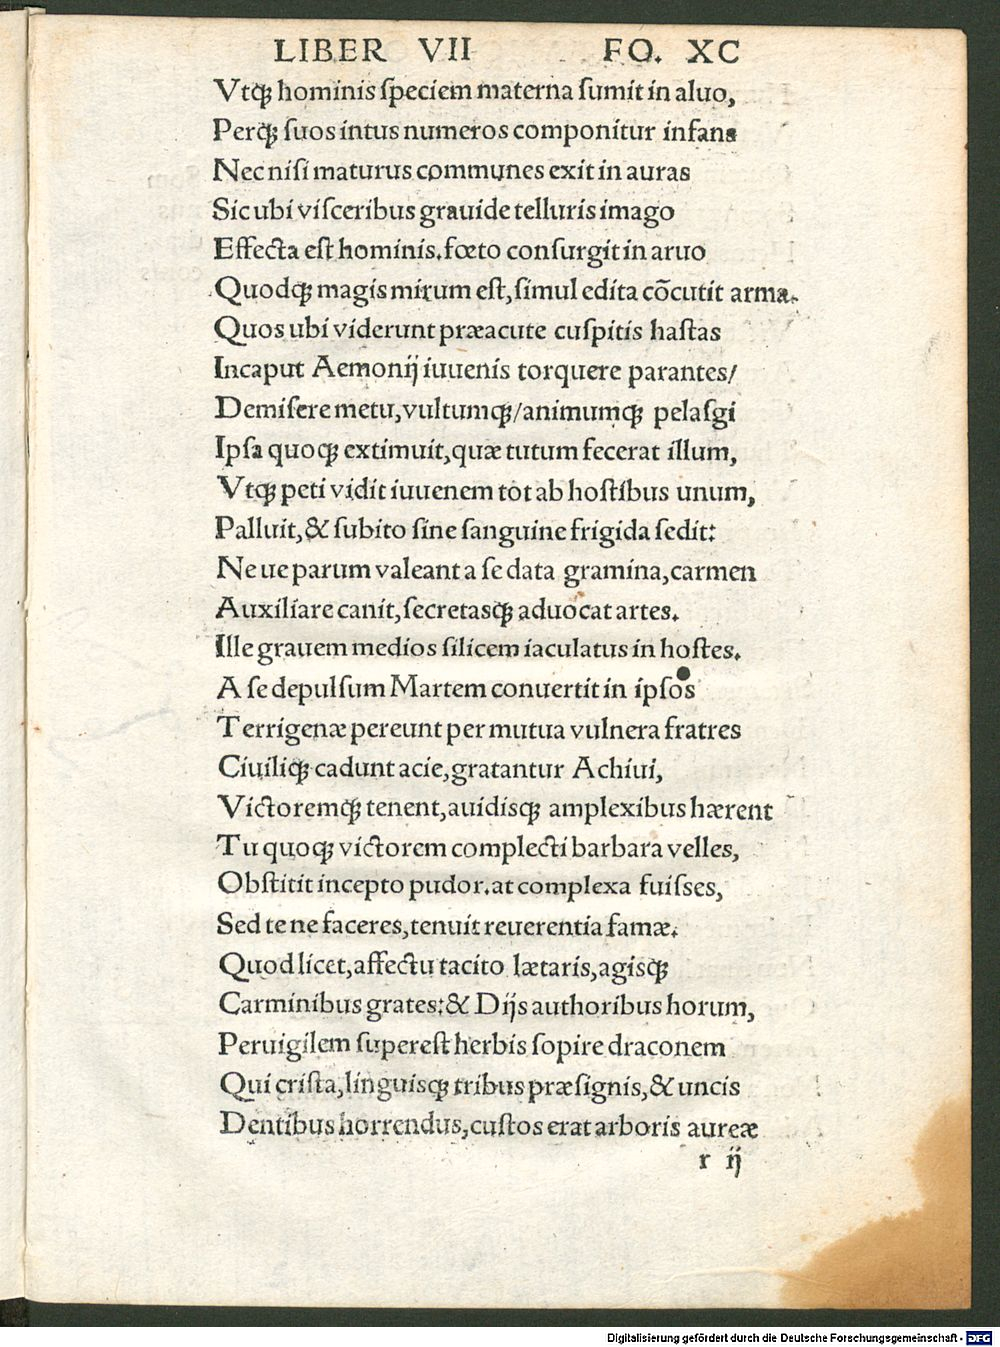 LIBER VII FO. XC
Vtqꝫ hominis ſpeciem materna ſumit in aluo,
Perqꝫ ſuos intus numeros componitur infans
Nec niſi maturus communes exit in auras
Sic ubi viſceribus grauide telluris imago
Effecta eſt hominis. fœto conſurgit in aruo
Quodqꝫ magis mirum eſt, ſimul edita cõcutit arma.
Quos ubi viderunt præacute cuſpitis haſtas
Incaput Aemonij iuuenis torquere parantes/
Demiſere metu, vultumqꝫ/animumqꝫ pelaſgi
Ipſa quoqꝫ extimuit, quæ tutum fecerat illum,
Vtqꝫ peti vidit iuuenem tot ab hoſtibus unum,
Palluit, & ſubito ſine ſanguine frigida ſedit:
Ne ue parum valeant a ſe data gramina, carmen
Auxiliare canit, ſecretasqꝫ aduocat artes.
Ille grauem medios ſilicem iaculatus in hoſtes.
A ſe depulſum Martem conuertit in ipſos
Terrigenæ pereunt per mutua vulnera fratres
Ciuiliqꝫ cadunt acie, gratantur Achiui,
Victoremqꝫ tenent, auidisqꝫ amplexibus hærent
Tu quoqꝫ victorem complecti barbara velles,
Obſtitit incepto pudor. at complexa fuiſſes,
Sed te ne faceres, tenuit reuerentia famæ.
Quod licet, affectu tacito lætaris, agisqꝫ
Carminibus grates: & Dijs authoribus horum,
Peruigilem ſupereſt herbis ſopire draconem
Qui criſta, linguisqꝫ tribus præſignis, & uncis
Dentibus horrendus, cuſtos erat arboris aureæ
r ij
Digitalisierung gefördert durch die Deutsche Forschungsgemeinschaft - DFG